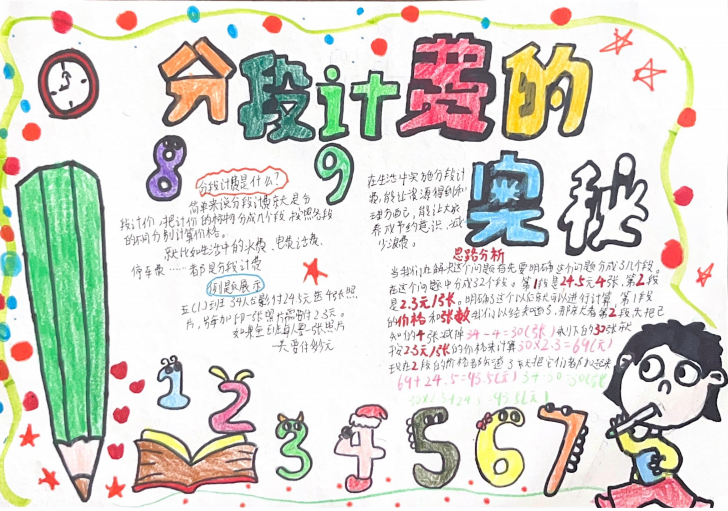 分段计费的
奥秘
8
9
分段计费是什么?
简单来说分段计费就是分
段计价,把计价的
的不同分别计算价格。
就比如生活中的水费、电费、话费、
停车费……都是分段计费
例题展示
五(1)班34人合影付24.5元送4张照
片,另每加印一张照片需再付2.3元。
如果全班每人要一张照片
一共要付多少元
在生活中实施分段计
费,能让资源得到合
理分配,能让大家
养成节约意识,减
少浪费。
思路分析
当我们在解决这个问题首先要明确这个问题分成了几个段。
在这个题中分成了2个段。第1段是24.5元4张,第2段
是2.3元1张。明确了这个以后就可以进行计算,第1段
的价格和张数我们已经知道了,那就先看第2段,先把已
知的4张减掉 34-4=30(张)剩下的30张就
按2.3元1张的价格来计算30×2.3=69(元)
现在2段的价格都知道了,就把它们都加起来
69+24.5=93.5(元) 34-4=30(张)
30×2.3+24.5=93.5(元)
1
2
3
4
5
6
7